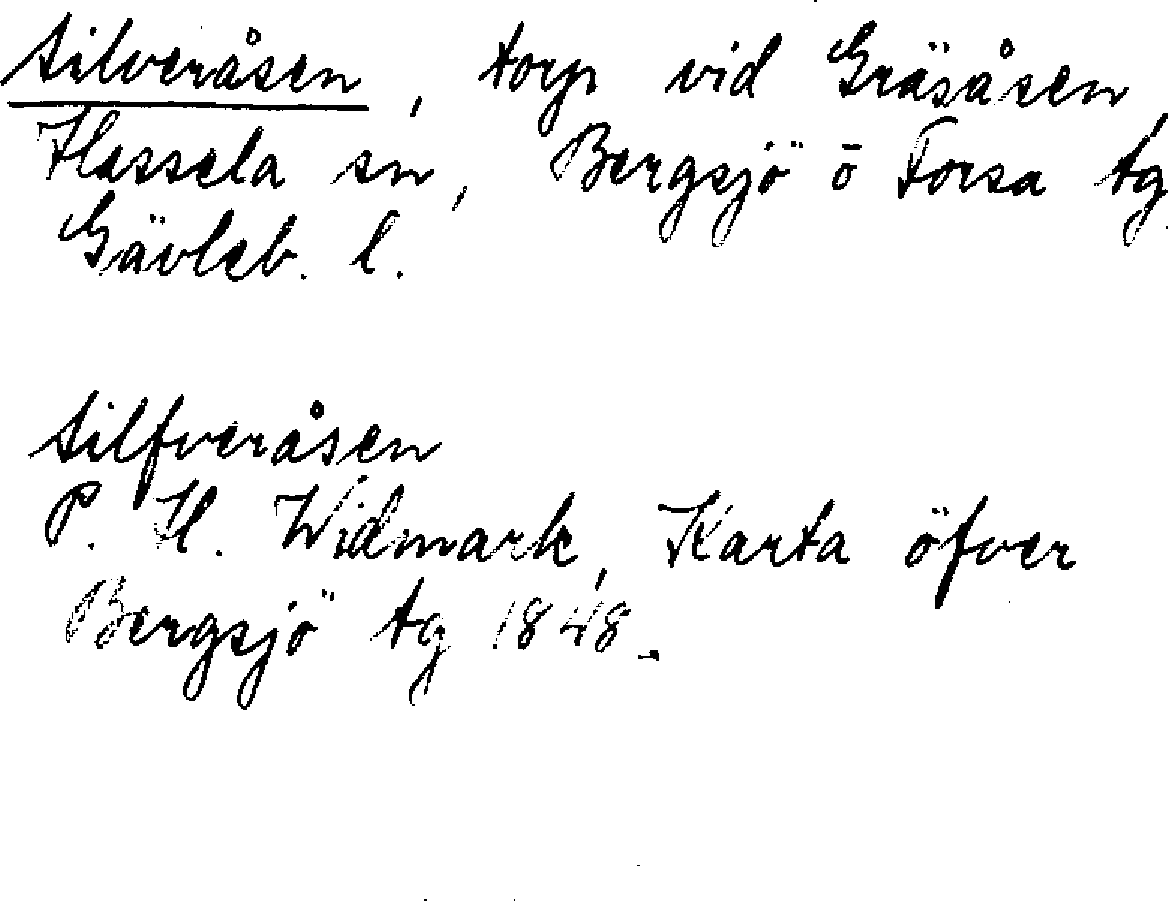 Silveråsen, torp vid Gräsåsen,
Hassela sn, Bergsjö o Forsa tg
Gävleb. l.
Silfveråsen
P. H. Widmark, Karta öfver
Bergsjö tg 1848.